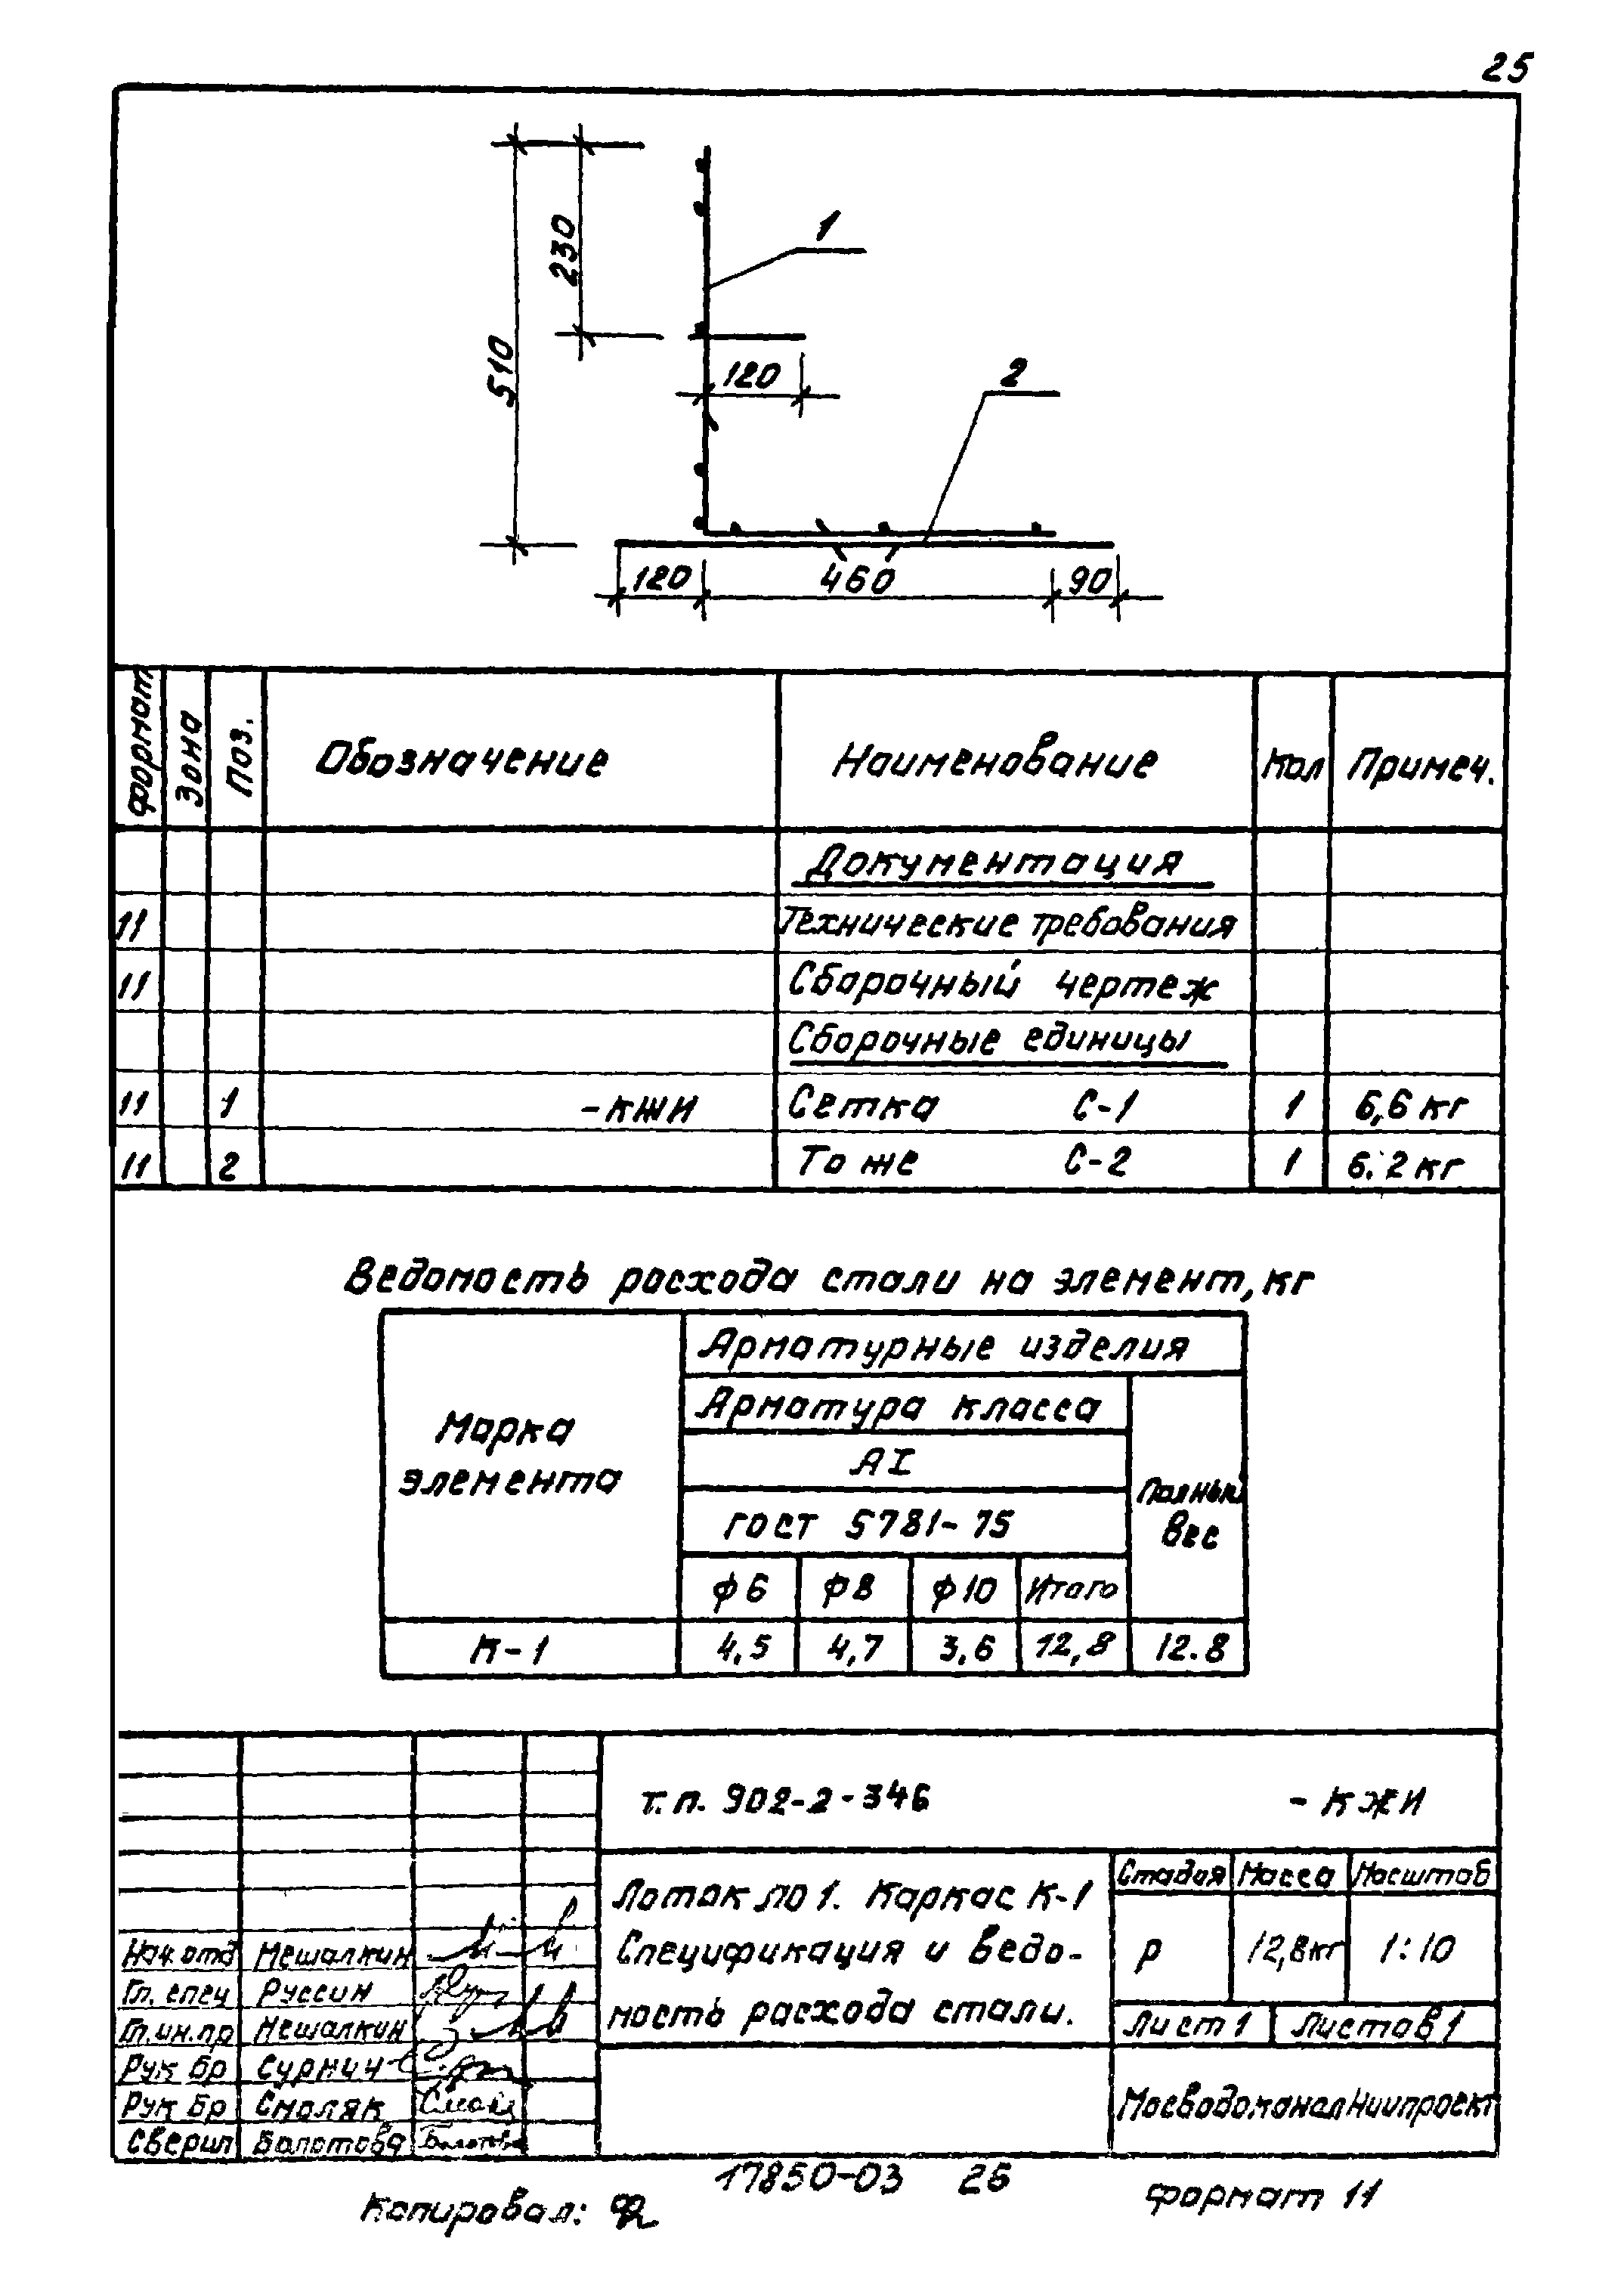 25
510
230
1
120
2
120 460 90
Формат Зона Поз. Обозначение Наименование Кол Примеч.
Документация
11 Технические требования
11 Сборочный чертеж
Сборочные единицы
11 1 -КЖИ Сетка С-1 1 6,6 кг
11 2 То же С-2 1 6.2 кг
Ведомость расхода стали на элемент, кг
Марка элемента
Арматурные изделия
Арматура класса
АI
ГОСТ 5781-75
Полный
вес
ф6 ф8 ф10 Итого
К-1 4,5 4,7 3,6 12,8 12.8
т.п. 902-2-346 -КЖИ
Лоток ЛО1. Каркас К-1
Спецификация и ведо-
мость расхода стали.
Стадия Масса Масштаб
р 12,8кг 1:10
Лист 1 Листов 1
МосводоканалНиипроект
Нач. отд Мешалкин
Гл. спец Руссин
Гл.ин.пр Мешалкин
Рук бр Сурмич
Рук бр Смоляк
Сверил Болотова
17850-03 26
Копировал:
Формат 11